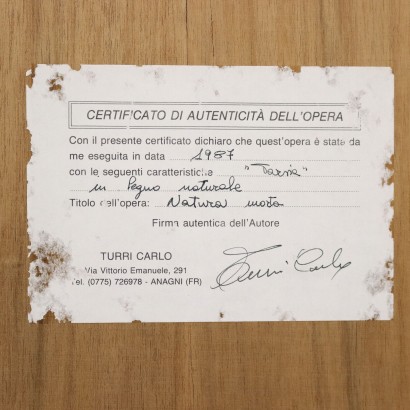 CERTIFICATO DI AUTENTICITÀ DELL'OPERA
Con il presente certificato dichiaro che quest'opera è stata da
me eseguita in data 1987
con le seguenti caratteristiche "Tarsia"
in legno naturale
Titolo dell'opera: Natura morta
Firma autentica dell'Autore
TURRI CARLO
Via Vittorio Emanuele, 291
Tel. (0775) 726978 - ANAGNI (FR)
Turri Carlo